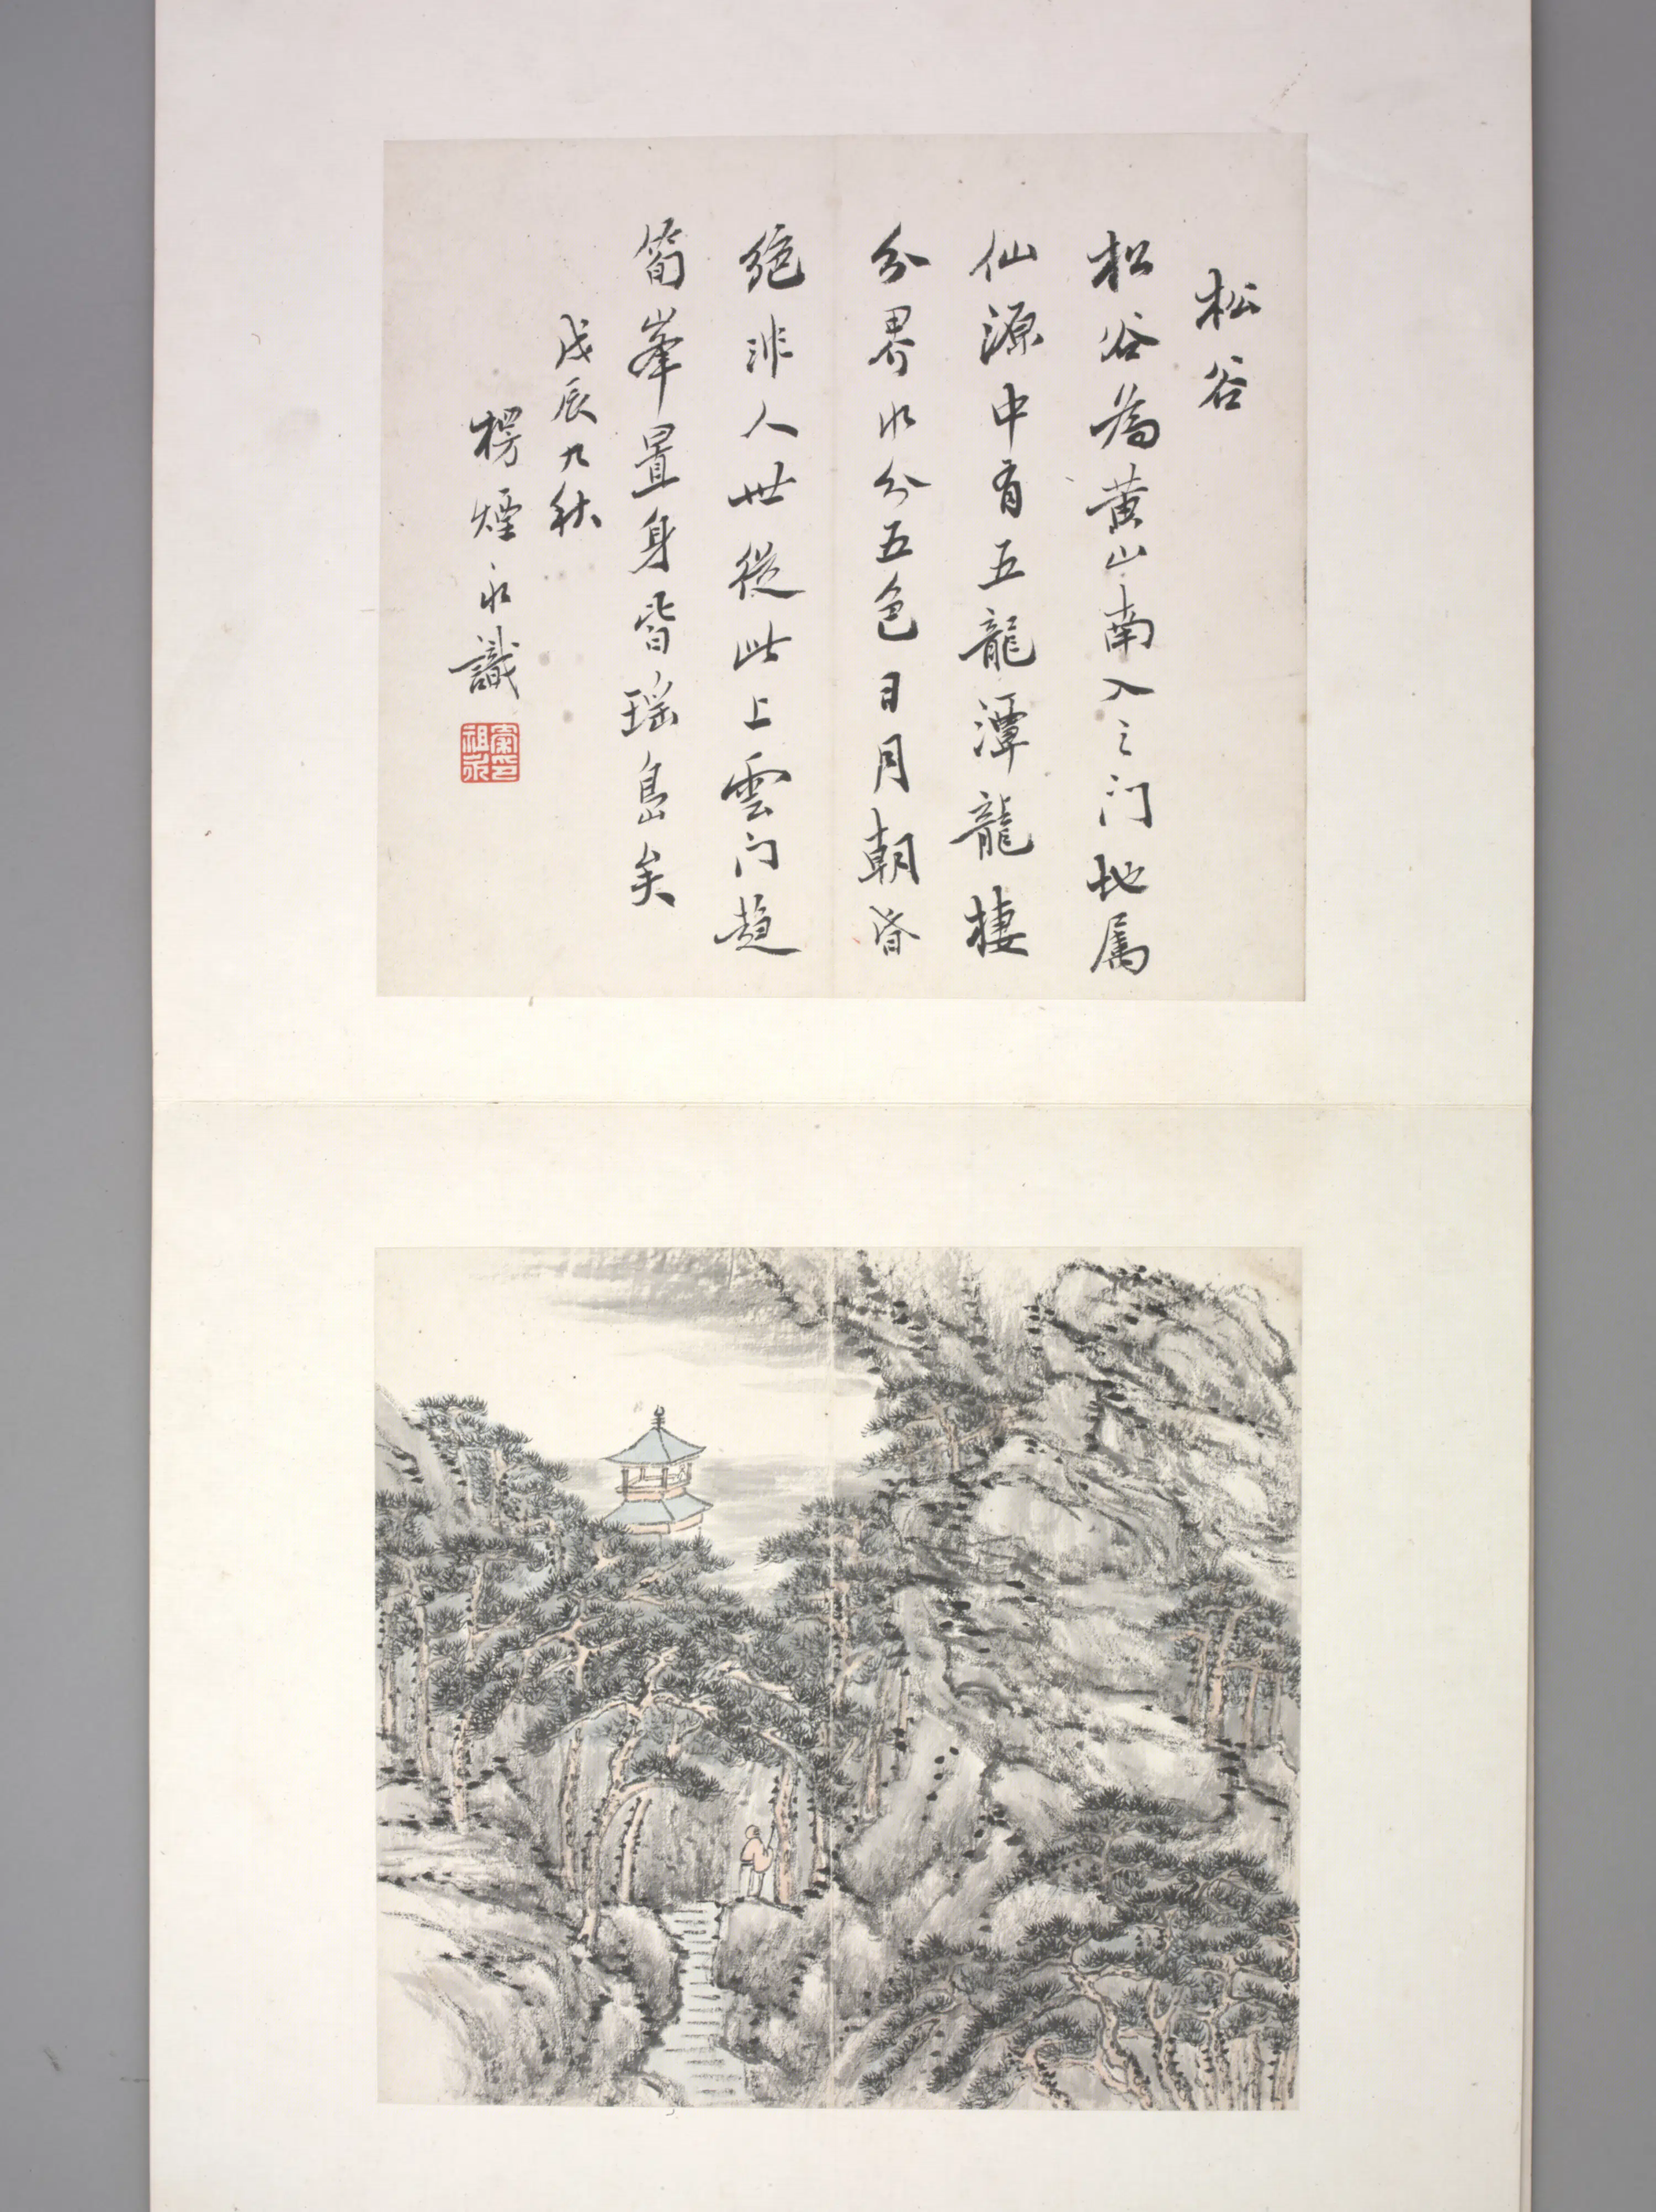 松谷
松谷為黄山南入之门地属
仙源中有五龍潭龍棲
分界水分五色日月朝昏
絶非人世從此上雲门趨
筍峯置身皆瑶島矣
戊辰九秋
楞煙永識